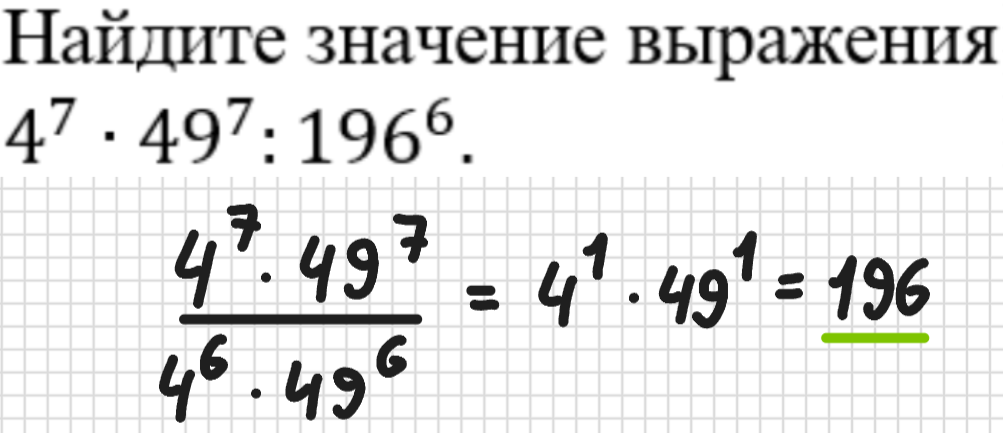 Найдите значение выражения
4⁷ · 49⁷: 196⁶.
4⁷ · 49⁷ / 4⁶ · 49⁶ = 4¹ · 49¹ = 196